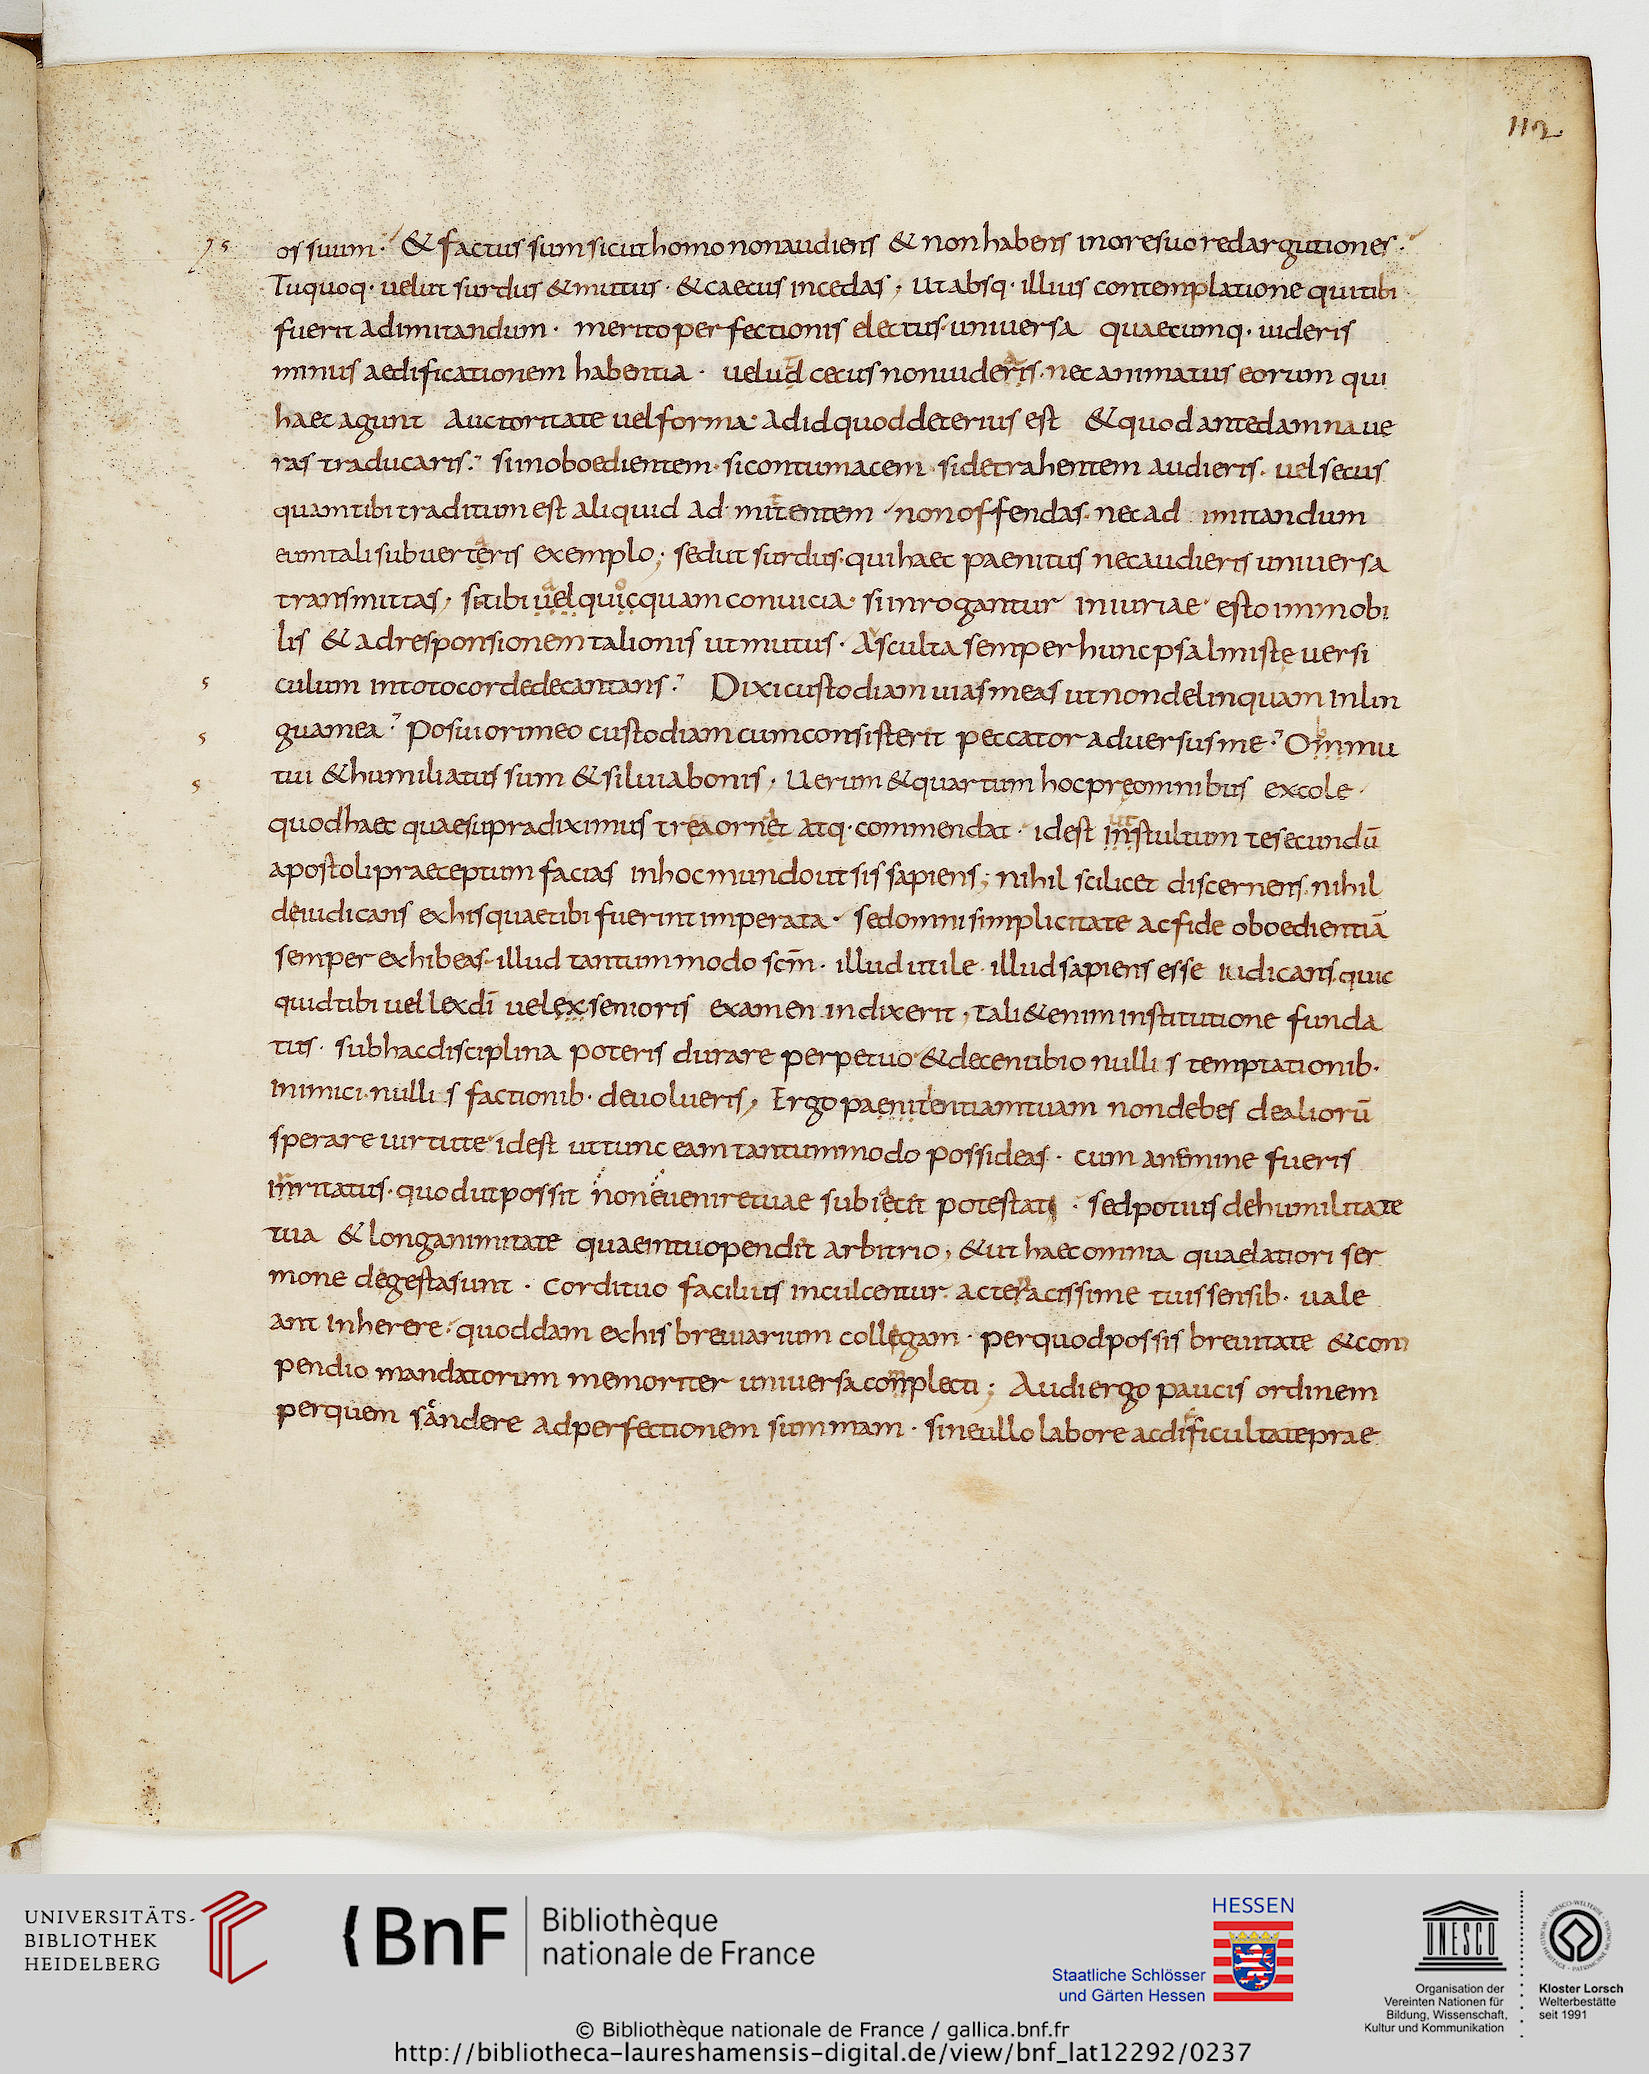 112.
os suum· & factus sum sicut homo non audiens & non habens in ore suo redargutiones·
Tu quoq· velut surdus & mutus· & caecus incedas; ut absq· illius contemplatione qui tibi
fuerit ad imitandum· merito perfectionis electus· universa quaecumq· videris
minus aedificationem habentia· velud cecus non videris· nec animatus eorum qui
haec agunt auctoritate vel forma· ad id quod deterius est & quod ante damnave
ras traducaris· si inoboedientem· si contumacem· si detrahentem audieris· vel secus
quam tibi traditum est aliquid admittentem· non offendas· nec ad imitandum
eum tali subverteris exemplo; sed ut surdus· qui haec paenitus nec audieris universa
transmittas; si tibi vel quicquam convicia· si inrogantur iniuriae· esto immobi
lis & ad responsionem talionis ut mutus· Asculta semper hunc psalmistę versi
culum in toto corde decantans· Dixi custodiam vias meas ut non delinquam in lin
gua mea· Posui ori meo custodiam cum consisterit peccator adversus me· Ommu
tui & humiliatus sum & silui a bonis; Verum & quartum hoc pręomnibus excole·
quod haec quae supra diximus trea ornet atq· commendat· id est instultum te secundū
apostoli praeceptum facias in hoc mundo ut sis sapiens; nihil scilicet discernens· nihil
deiudicans ex his quae tibi fuerint imperata· sed omni simplicitate ac fide oboedientiā
semper exhibeas· illud tantum modo scm̄· illud utile· illud sapiens esse iudicans· quic
quid tibi vel lex dī vel ex senioris examen indixerit; Tali & enim institutione funda
tus· sub hac disciplina poteris durare perpetuo & de cenubio nullis temptationib·
inimici· nullis factionib· devolveris; Ergo paenitentiam tuam non debes de aliorū
sperare virtute· id est ut tunc eam tantum modo possideas· cum a nemine fueris
inritatus· quod ut possit non evenire tuae subiecit potestati· sed potius de humilitate
tua & longanimitate quae in tuo pendit arbitrio; & ut haec omnia quae latiori ser
mone degesta sunt· cordi tuo facilius inculcentur· ac teracissime tuis sensib· vale
ant inherere· quoddam ex his breviarium collegam· per quod possis brevitate & com
pendio mandatorum memoriter universa complecti; Audi ergo paucis ordinem
per quem sandere ad perfectionem summam· sine ullo labore ac dificultate prae
UNIVERSITÄTS-
BIBLIOTHEK
HEIDELBERG
BnF
Bibliothèque
nationale de France
HESSEN
Staatliche Schlösser
und Gärten Hessen
UNESCO
Organisation der
Vereinten Nationen für
Bildung, Wissenschaft,
Kultur und Kommunikation
Kloster Lorsch
Welterbestätte
seit 1991
© Bibliothèque nationale de France / gallica.bnf.fr
http://bibliotheca-laureshamensis-digital.de/view/bnf_lat12292/0237